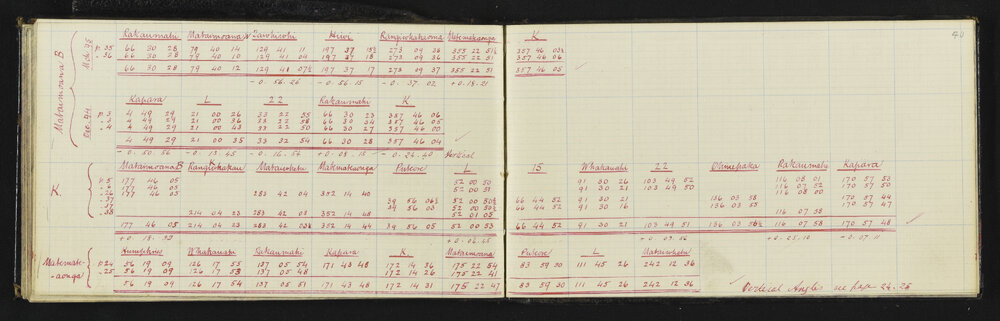 40
Rakaumahi Matamoana N Tawhiwhi Hiwi K
Matamoana B
Mch. 95 p. 35 66 30 28 79 40 14 129 41 11 197 37 15½ 273 09 38 355 22 51½ 357 46 03½
. 36 66 30 28 79 40 10 129 41 04 197 37 18 273 09 36 355 22 51 357 46 06
66 30 28 79 40 12 129 41 07½ 197 37 17 273 09 37 355 22 51 357 46 05
- 0 . 56 . 26 - 0 . 56 . 15 - 0 . 37 . 02 + 0 . 18 . 21
Kapara L 22 Rakaumahi K
Dec. 94 p. 3 4 49 29 21 00 26 33 22 55 66 30 23 357 46 06
. 4 4 49 29 21 00 36 33 22 58 66 30 34 357 46 05
. 4 4 49 29 21 00 43 33 22 50 66 30 27 357 46 00
4 49 29 21 00 35 33 32 54 66 30 28 357 46 04
- 0 . 50 . 56 - 0 . 13 . 45 - 0 . 16 . 54 + 0 . 05 . 15 - 0 . 26 . 40 Vertical
Matamoana B Pukeore L 15 Whakauahi 22 Rakaumahi Kapara
K.
p. 5 177 46 05 52 00 50 91 30 26 103 49 52 116 08 01 170 57 53
. 6 177 46 05 52 00 51 91 30 21 103 49 50 116 07 52 170 57 50
. 26 177 46 05 283 42 04 352 14 40 116 08 00
. 37 39 56 06½ 52 00 50½ 66 44 52 91 30 21 136 03 58 170 57 44
. 37 39 56 03 52 00 50½ 66 44 52 91 30 16 136 03 55 170 57 47
. 38 214 04 23 283 42 03 352 14 48 52 01 05 116 07 58
177 46 05 214 04 23 283 42 03½ 352 14 44 39 56 05 52 00 53 66 44 52 91 30 21 103 49 51 136 03 56½ 116 07 58 170 57 48
+ 0 . 18 . 39 + 0 . 06 . 25 + 0 . 09 . 56 + 0 . 05 . 10 - 0 . 07 . 11
Whakauahi Rakaumahi Kapara K Matamoana Pukeore L
p. 24 56 19 09 126 17 55 137 05 54 171 43 48 172 14 36 175 22 54 83 59 30 111 45 26 242 12 36
. 25 56 19 09 126 17 53 137 05 48 172 14 26 175 22 41
56 19 09 126 17 54 137 05 51 171 43 48 172 14 31 175 22 47 83 59 30 111 45 26 242 12 36
Vertical Angles see page 24-25